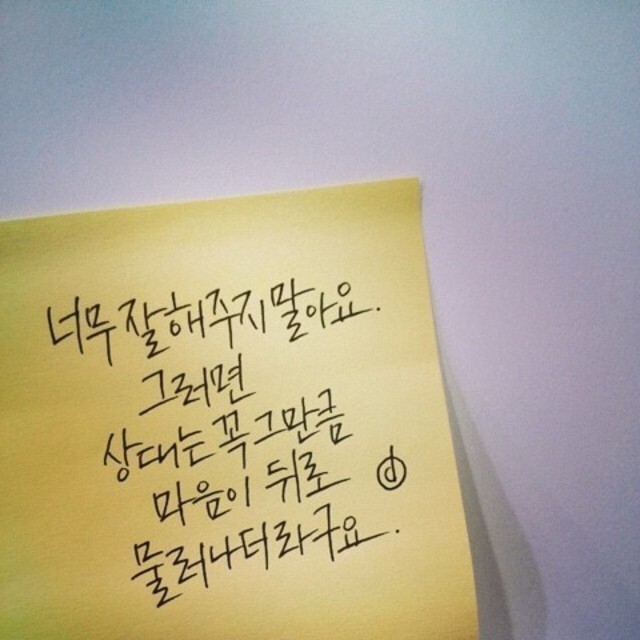 너무 잘해주지 말아요.
그러면
상대는 꼭 그만큼
마음이 뒤로
물러나더라구요.